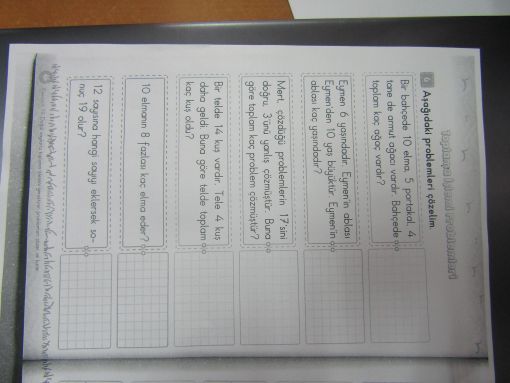 Toplama İşlemi Problemleri
Aşağıdaki problemleri çözelim.
Bir bahçede 10 elma, 5 portakal, 4
tane de armut ağacı vardır. Bahçede
toplam kaç ağaç vardır?
Eymen 6 yaşındadır. Eymen'in ablası
Eymen'den 10 yaş büyüktür. Eymen'in
ablası kaç yaşındadır?
Mert, çözdüğü problemlerin 17'sini
doğru, 3'ünü yanlış çözmüştür. Buna
göre toplam kaç problem çözmüştür?
Bir telde 14 kuş vardır. Tele 4 kuş
daha geldi. Buna göre telde toplam
kaç kuş oldu?
10 elmanın 8 fazlası kaç elma eder?
12 sayısına hangi sayıyı eklersek so-
nuç 19 olur?